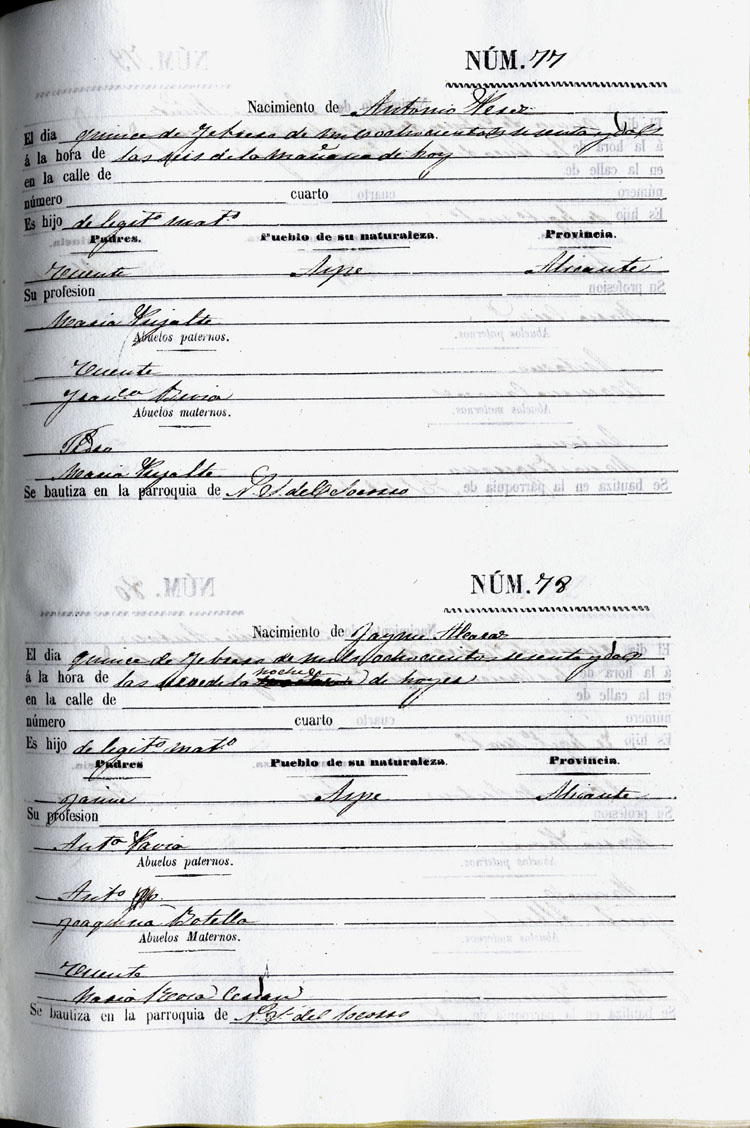 NÚM. 77
Nacimiento de Antonio Perez
El dia quince de Febrero de mil ochocientos sesenta y dos
á la hora de las seis de la mañana de hoy
en la calle de
número cuarto
Es hijo de legitº matº
Padres. Pueblo de su naturaleza. Provincia.
Vicente Aspe Alicante
Su profesion
Maria
Abuelos paternos.
Vicente
Franca Pavia
Abuelos maternos.
Pedro
Maria
Se bautiza en la parroquia de N. S. del Socorro
NÚM. 78
Nacimiento de Jayme Alcaraz
El dia quince de Febrero de mil ochocientos sesenta y dos
á la hora de las de la noche de
en la calle de
número cuarto
Es hijo de legitº matº
Padres Pueblo de su naturaleza. Provincia.
Jaime Aspe Alicante
Su profesion
Antª Pavia
Abuelos paternos.
Antº
Joaquina Botella
Abuelos Maternos.
Vicente
Maria
Se bautiza en la parroquia de N. S. del Socorro